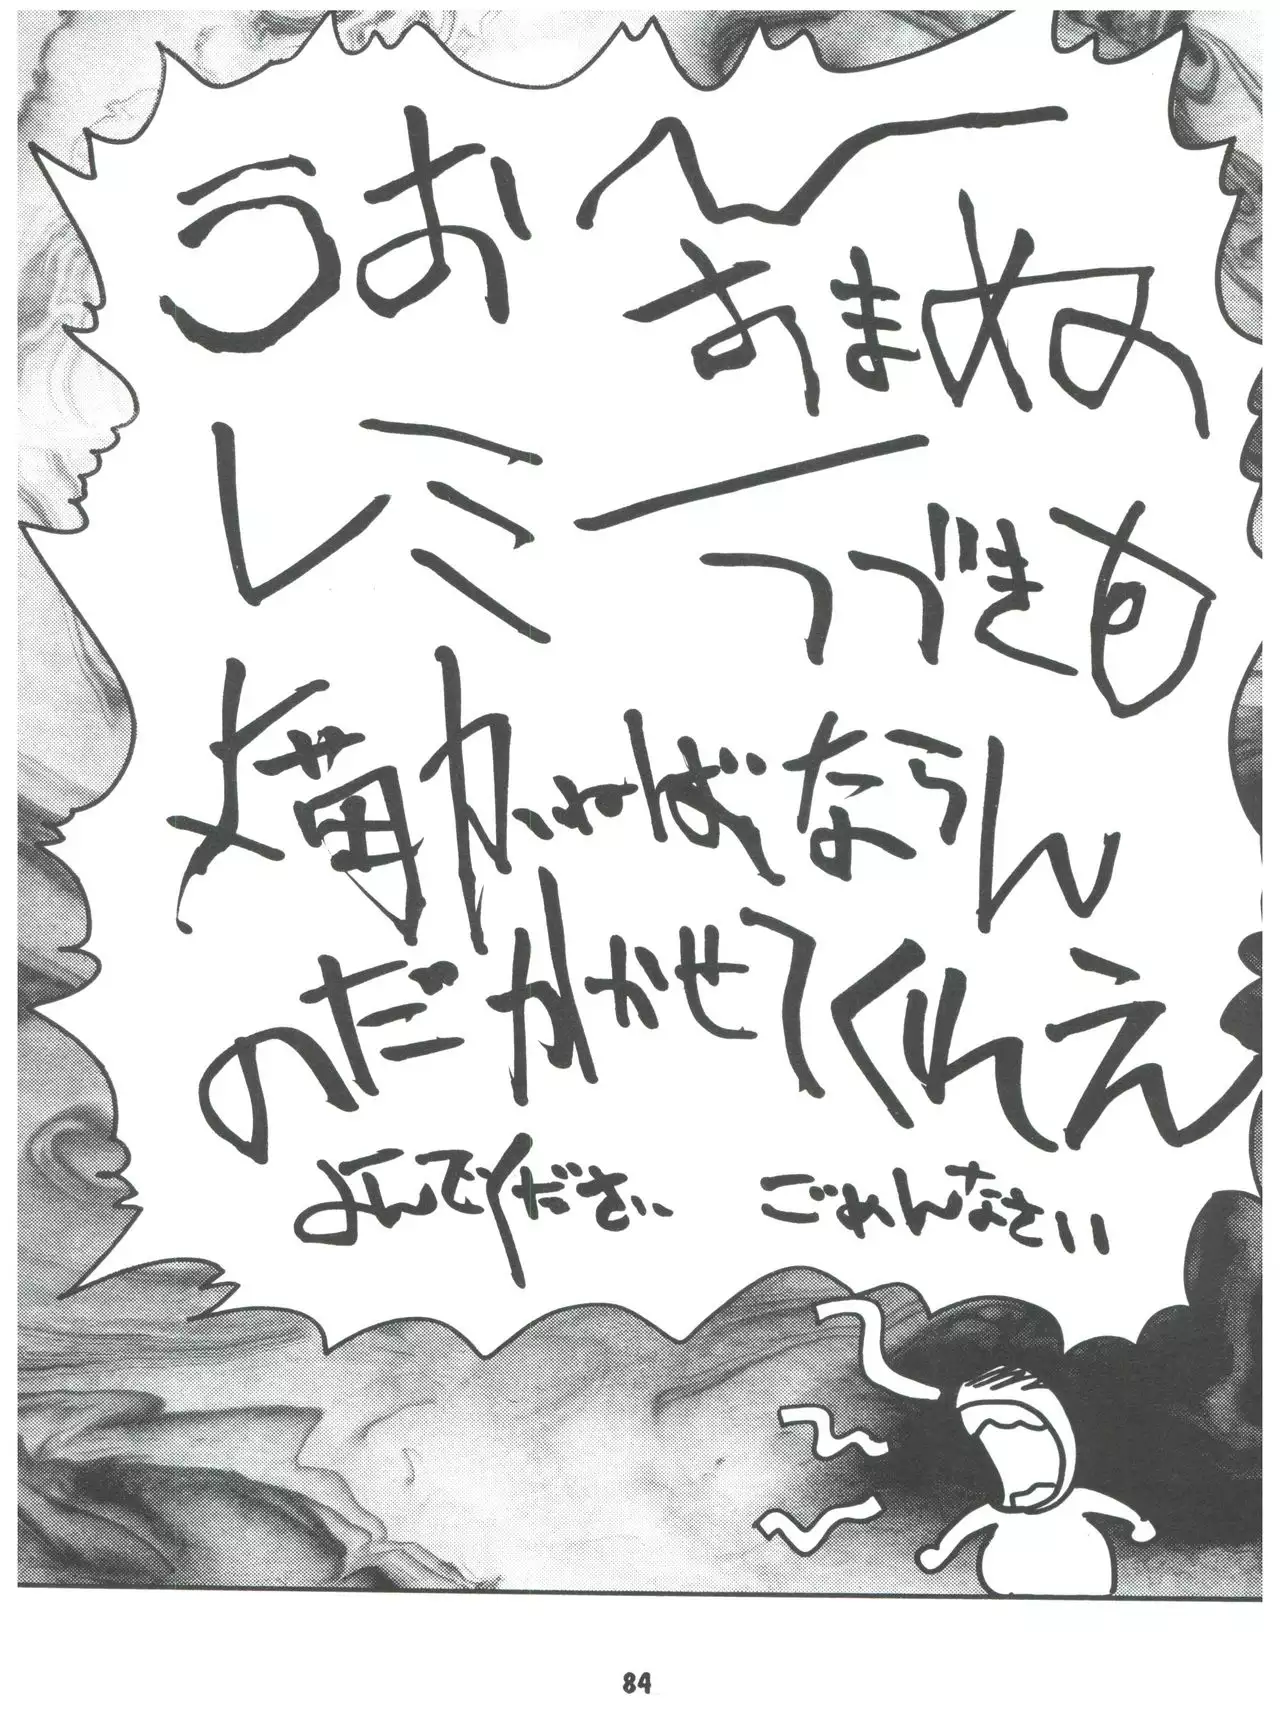 うお〜ー
あまぬの
レミー
つづきも
描かねばならん
のだ かかせてくれえ
よんでください ごめんなさい
84